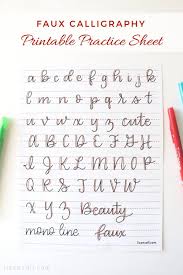 FAUX CALLIGRAPHY
Printable Practice Sheet
a b c d e f g h i j k
l m n o p q r s t
u v w x y z A B
C D E F G H
I J K L M N O P
Q R S T U V W
X Y Z Beauty
mono line faux